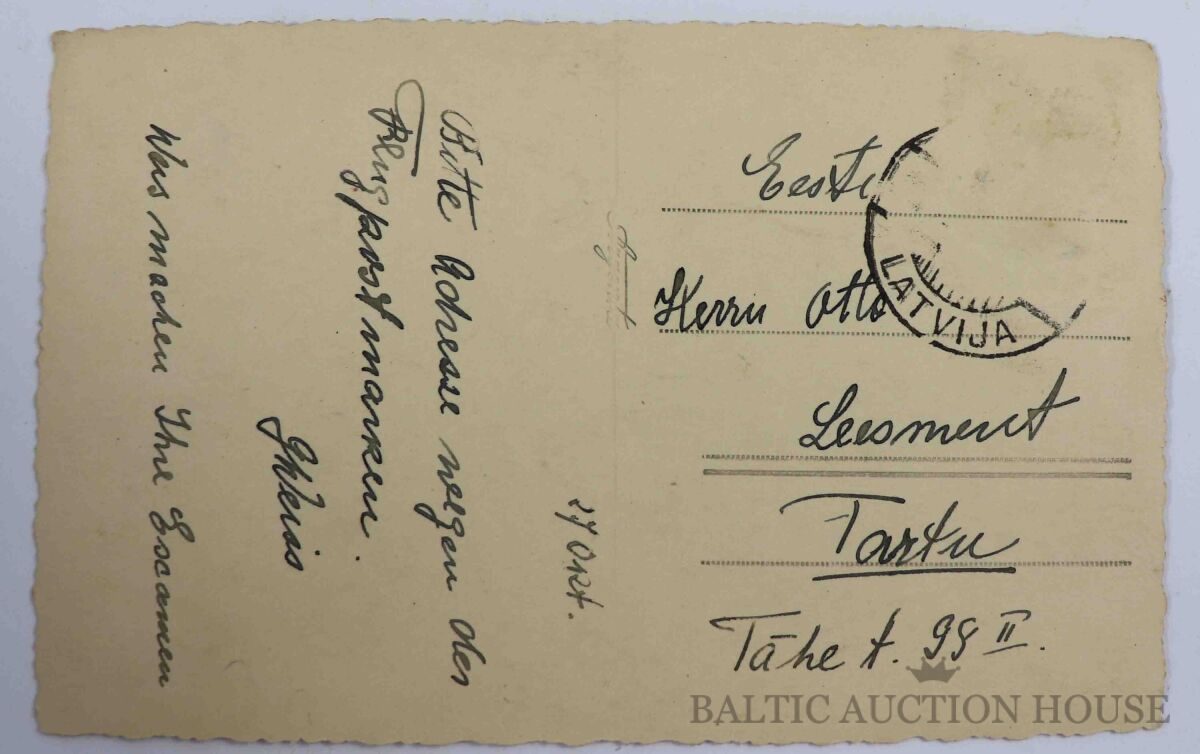 27 Okt.
Bitte Adresse wegen der
Flugpostmarken.
Was machen Ihre Examen
Eesti
Herrn Otto
Leesment
Tartu
Tähe t. 99 II.
LATVIJA
BALTIC AUCTION HOUSE